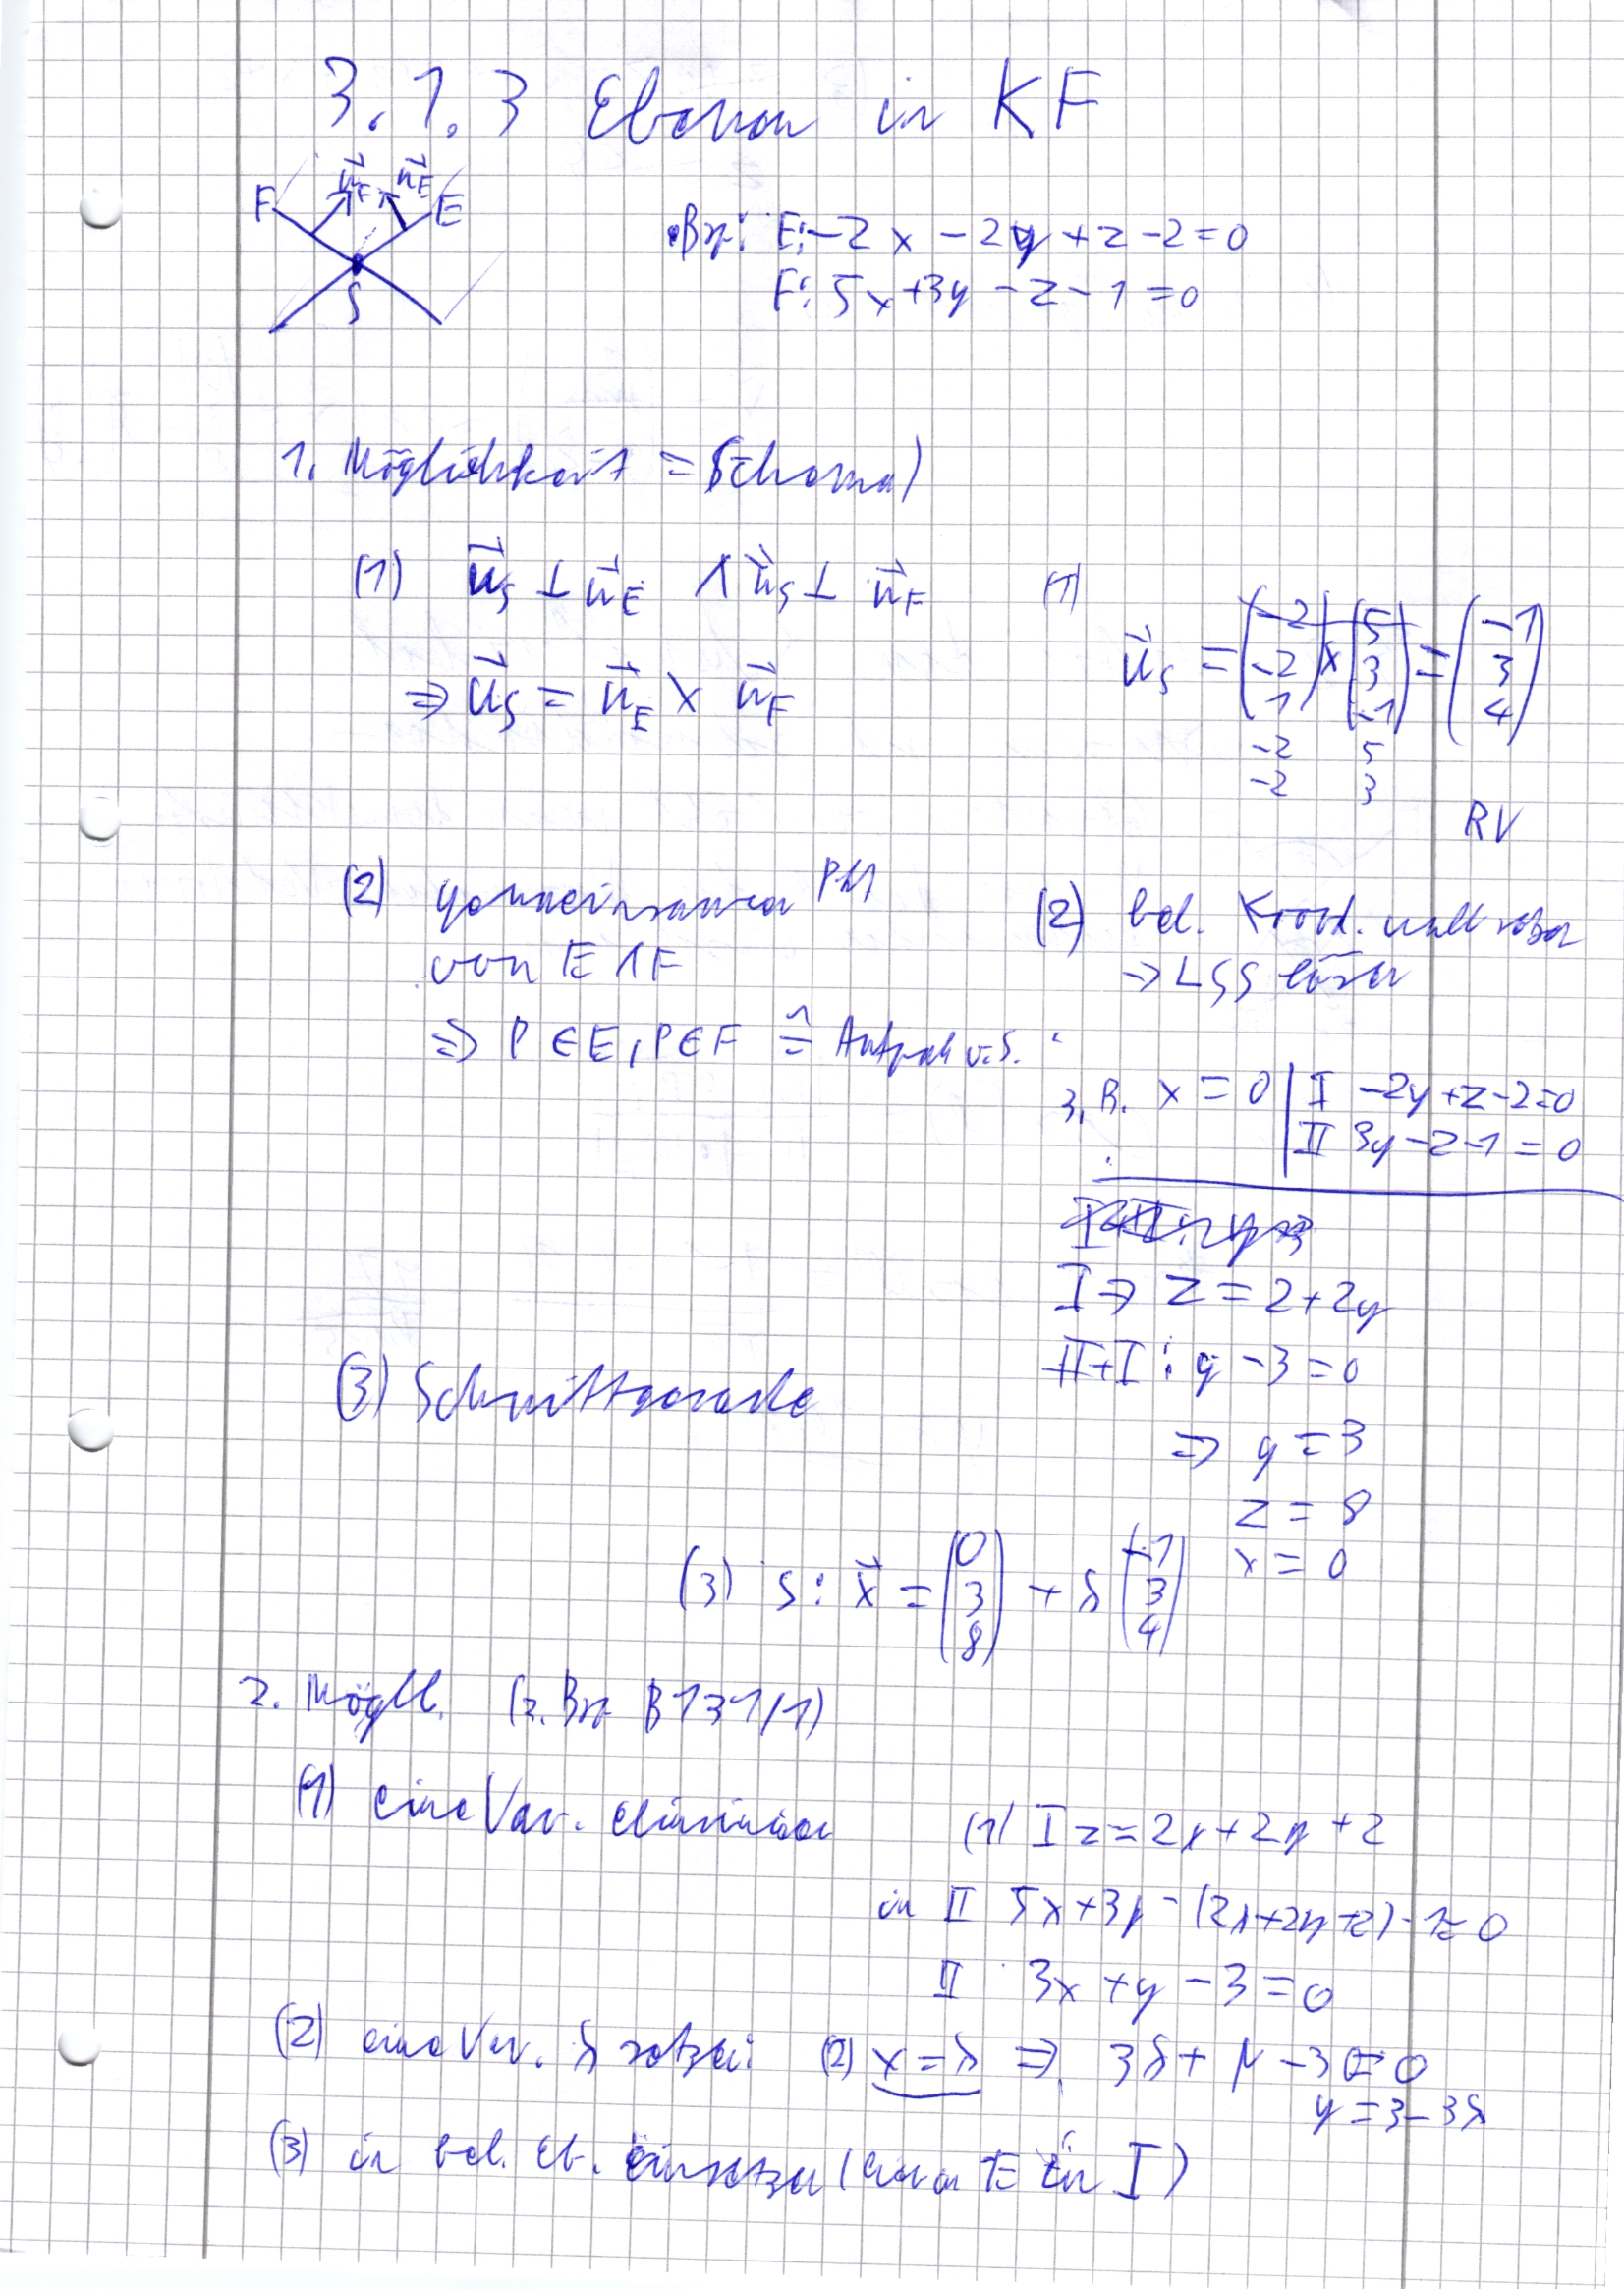 3.1.3 Ebenen in KF
F n⃗F n⃗E E
S
Bsp: E: -2x - 2y + z - 2 = 0
F: 5x + 3y - z - 1 = 0
1. Möglichkeit = Schema)
(1) u⃗S ⊥ n⃗E ∧ u⃗S ⊥ n⃗F
⇒ u⃗S = n⃗E × n⃗F
(1)
u⃗S = (-2 -2 1) × (5 3 -1) = (-1 3 4)
-2 5
-2 3
RV
(2) gemeinsamen Pkt
von E ∧ F
⇒ P ∈ E, P ∈ F ≙ Aufpkt v. S.
(2) bel. Koord. null setzen
→ LGS lösen
z.B. x = 0 | I -2y + z - 2 = 0
II 3y - z - 1 = 0
I ⇒ z = 2 + 2y
II + I : y - 3 = 0
⇒ y = 3
z = 8
x = 0
(3) Schnittgerade
(3) S: x⃗ = (0 3 8) + λ (-1 3 4)
2. Mögl. (z. Bsp B 131/1)
(1) eine Var. eliminieren
(1) I z = 2x + 2y + 2
in II 5x + 3y - (2x + 2y + 2) - 1 = 0
II 3x + y - 3 = 0
(2) eine Var. λ setzen:
(2) x = λ ⇒ 3λ + y - 3 = 0
y = 3 - 3λ
(3) in bel. Eb. einsetzen ( E in I)